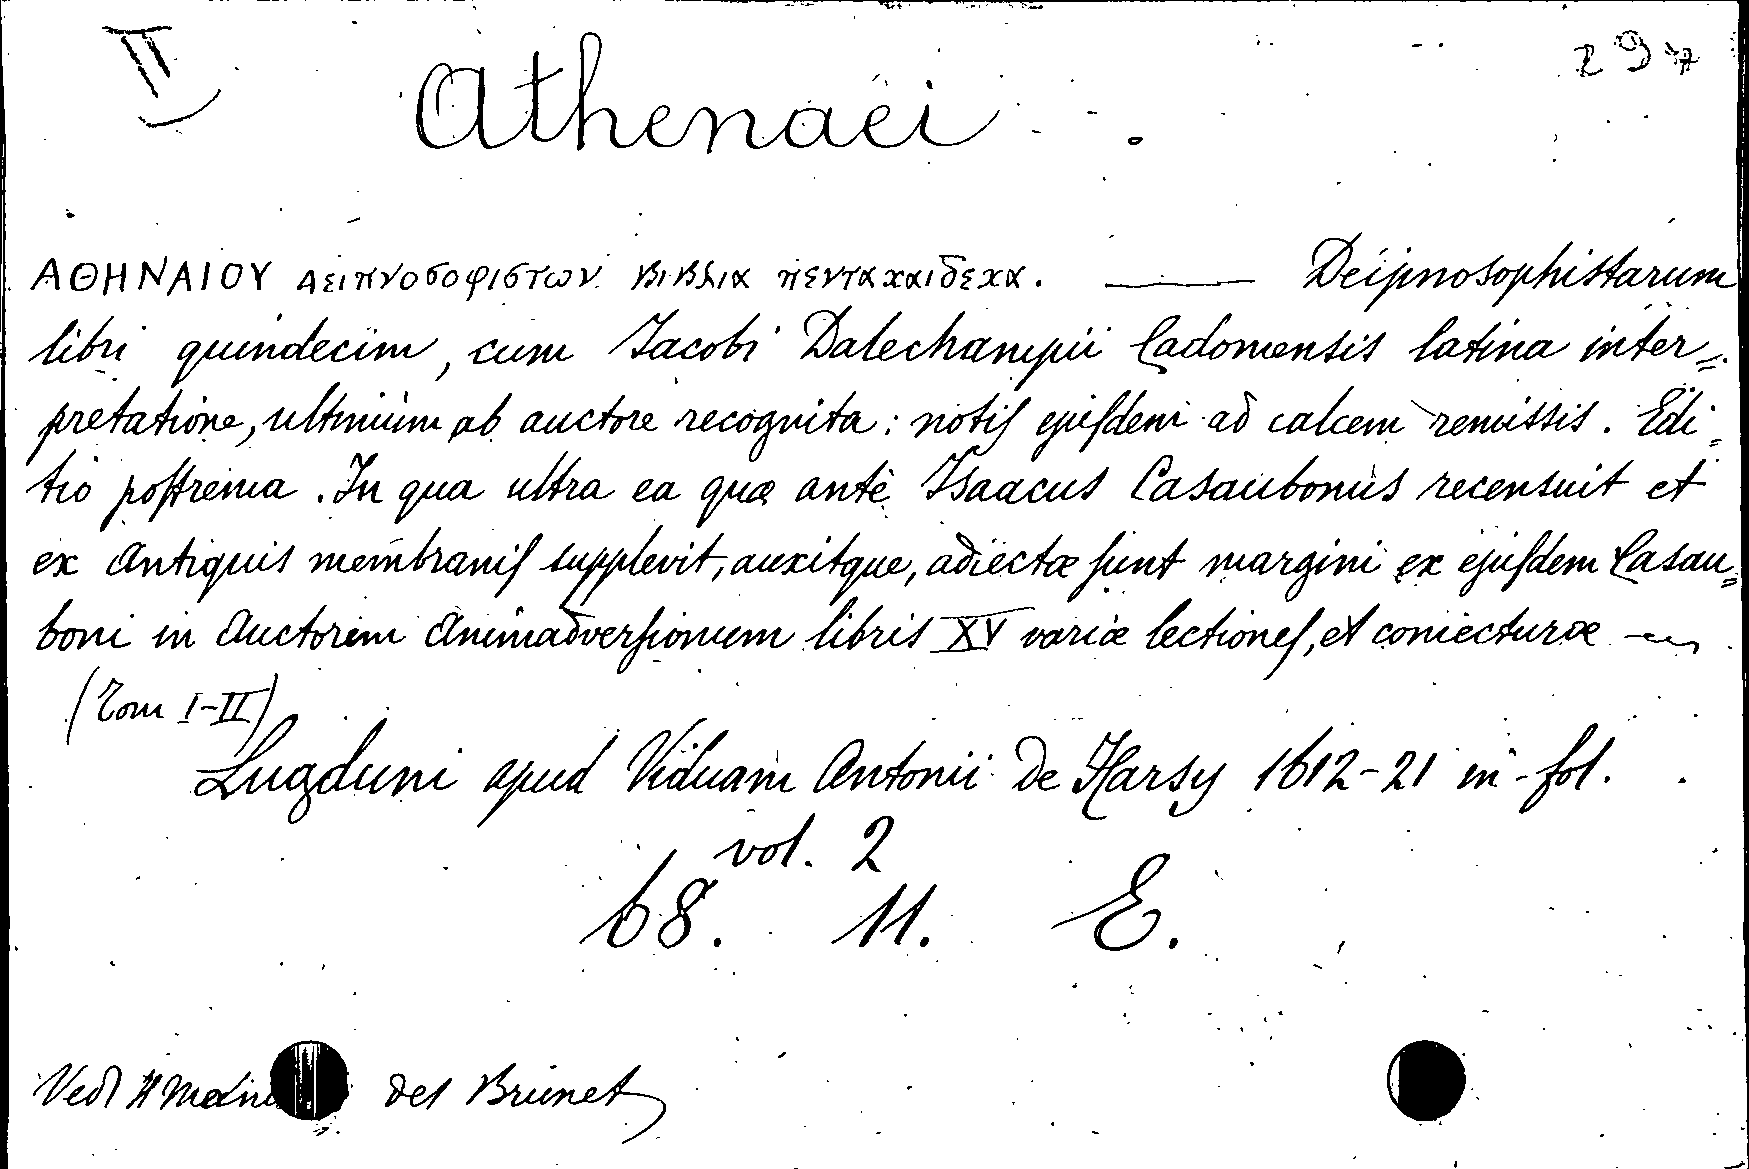 II
297
Athenaei
ΑΘΗΝΑΙΟΥ Δειπνοσοφιστων Βιβλια πενταχαιδεχα. —— Deipnosophistarum
libri quindecim, cum Jacobi Dalechampii Cadomensis latina inter=
pretatione, ultimùm ab auctore recognita: notis ejusdem ad calcem remissis. Edi=
tio postrema. In qua ultra ea quæ antè Isaacus Casaubonus recensuit et
ex Antiquis membranis supplevit, auxitque, adiectæ sunt margini ex ejusdem Casau=
boni in Auctorem Animadversionum libris XV variæ lectiones, et coniecturæ —
(Tom I-II)
Lugduni apud Viduam Antonii De Harsy 1612-21 in-fol.
vol. 2
68. 11. E.
Vedi del Brunet